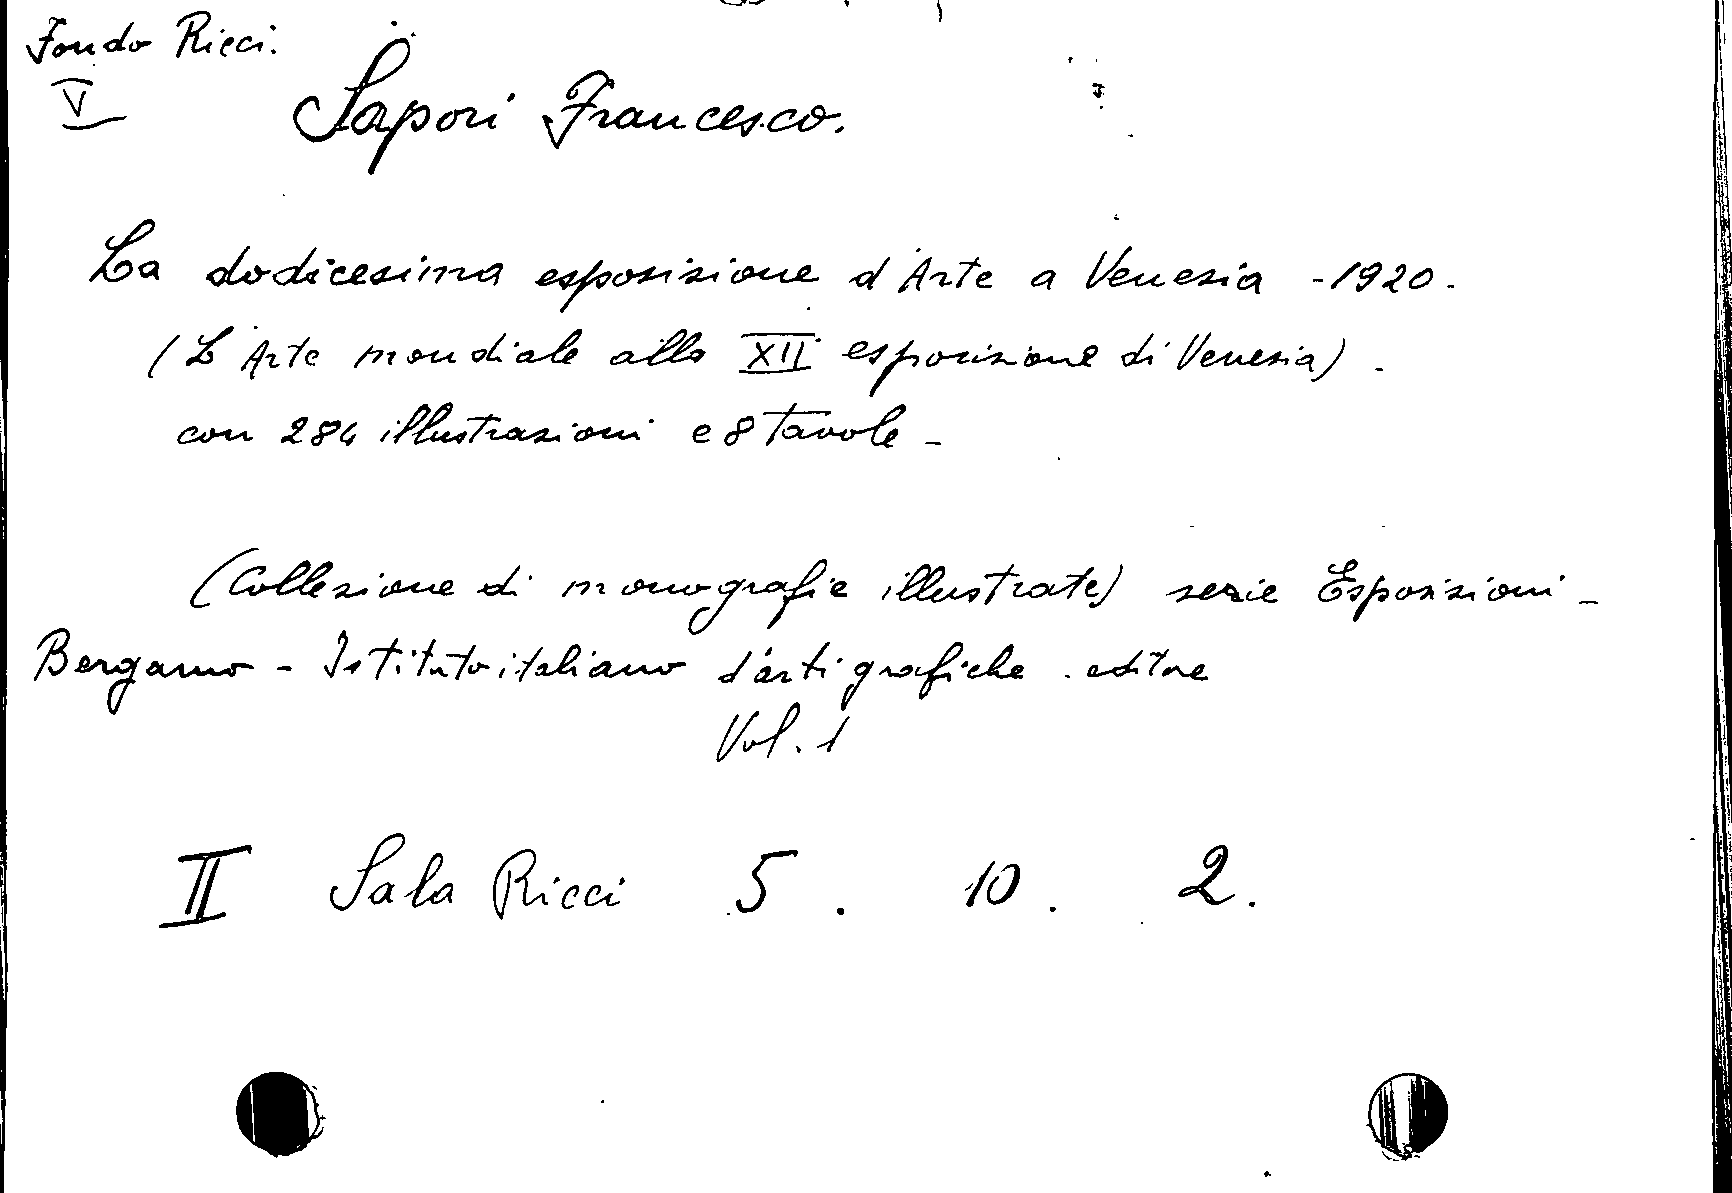 Fondo Ricci.
V
Sapori Francesco.
La dodicesima esposizione d'Arte a Venezia - 1920.
(L'Arte mondiale alla XII esposizione di Venezia).
con 284 illustrazioni e 8 Tavole -
(Collezione di monografie illustrate) serie Esposizioni -
Bergamo - Istituto italiano d'arti grafiche. editore
Vol. 1
II Sala Ricci 5. 10. 2.